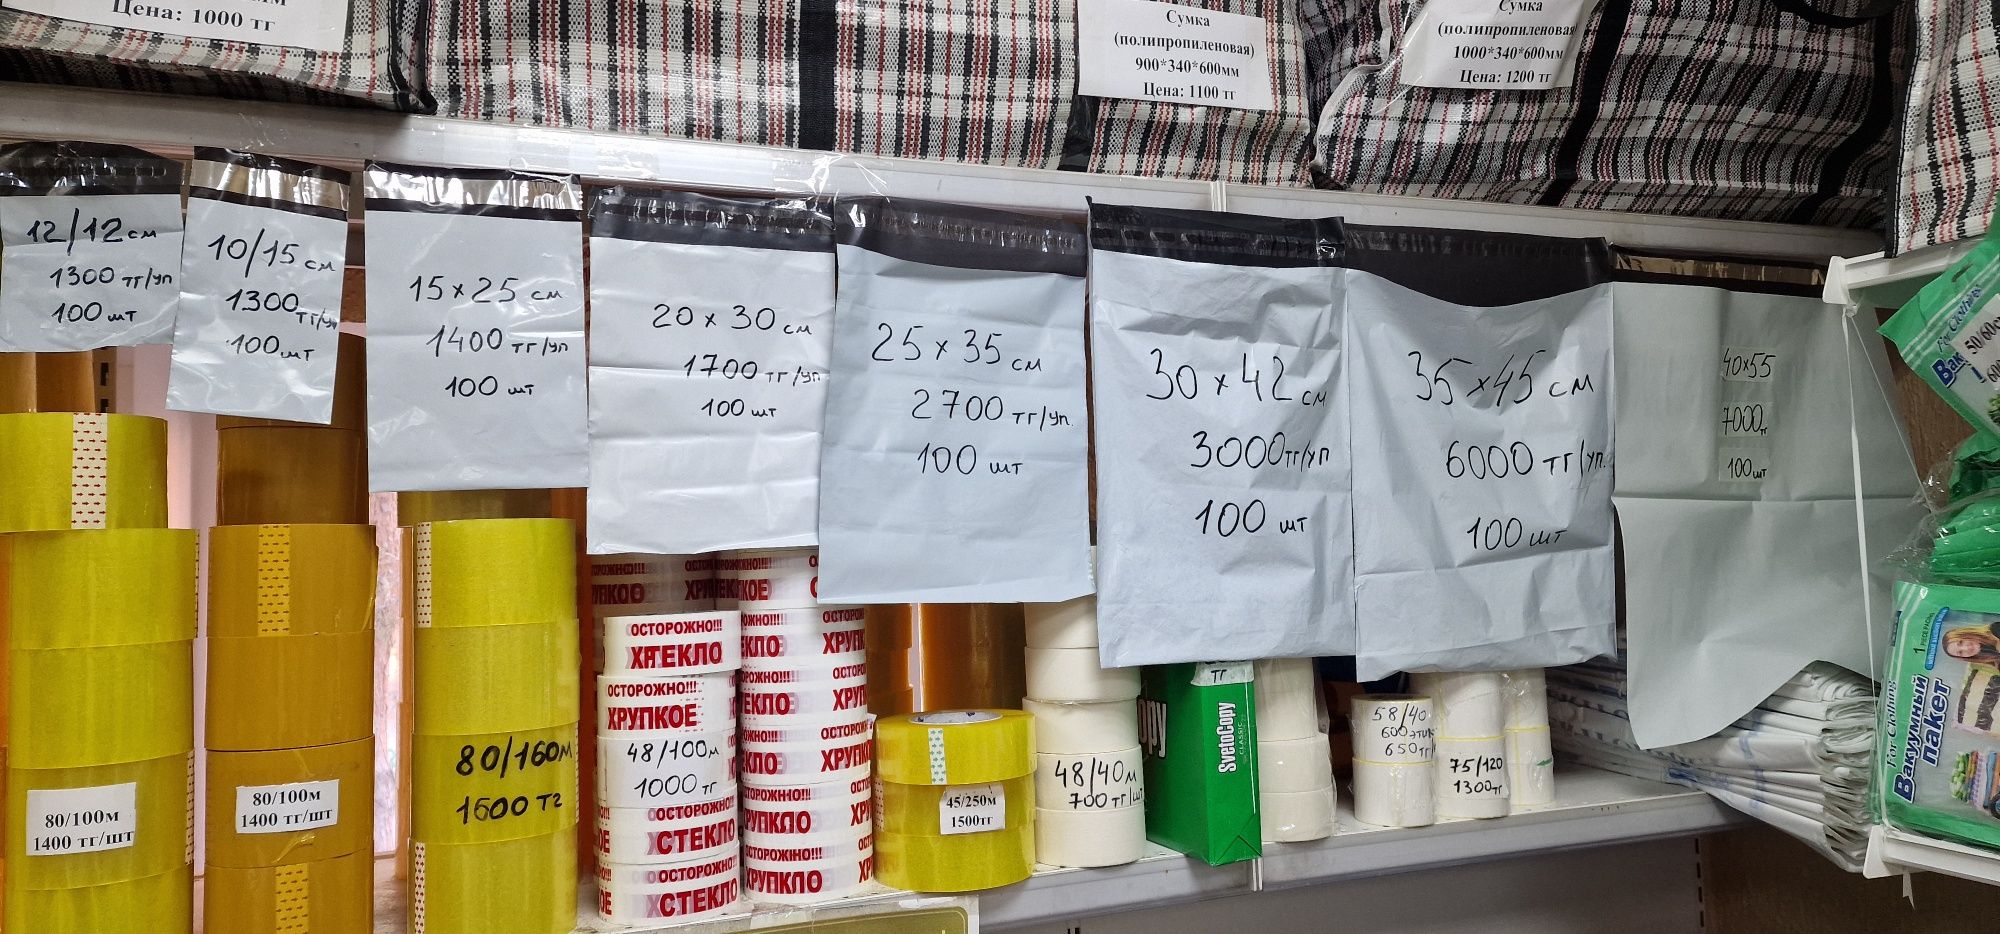 Цена: 1000 тг
Сумка
(полипропиленовая)
900*340*600мм
Цена: 1100 тг
Сумка
(полипропиленовая
1000*340*600мм
Цена: 1200 тг
12/12 см
1300 тг/уп
100 шт
10/15 см
1300 тг/уп
100 шт
15 x 25 см
1400 тг/уп
100 шт
20 x 30 см
1700 тг/уп
100 шт
25 x 35 см
2700 тг/уп.
100 шт
30 x 42 см
3000 тг/уп
100 шт
35 x 45 см
6000 тг/уп.
100 шт
40x55
7000 тг
100 шт
For Clothing
50/60
80/100м
1400 тг/шт
80/100м
1400 тг/шт
80/160м
1600 тг
ОСТОРОЖНО!!!
СТЕКЛО
ОСТОРОЖНО!!!
ХРУПКОЕ
48/100м
1000 тг
ОСТОРОЖНО!!!
СТЕКЛО
ОСТОРОЖНО!!!
СТЕКЛО
ОСТОРОЖНО!!!
ОСТОРОЖНО!!!
ОСТОРОЖНО!!!
45/250м
1500тг
48/40м
700 тг/шт
тг
SvetoCopy
CLASSIC
58/40
600 этик
650 тг/
75/120
1300 тг
For Clothing
Вакуумный
пакет